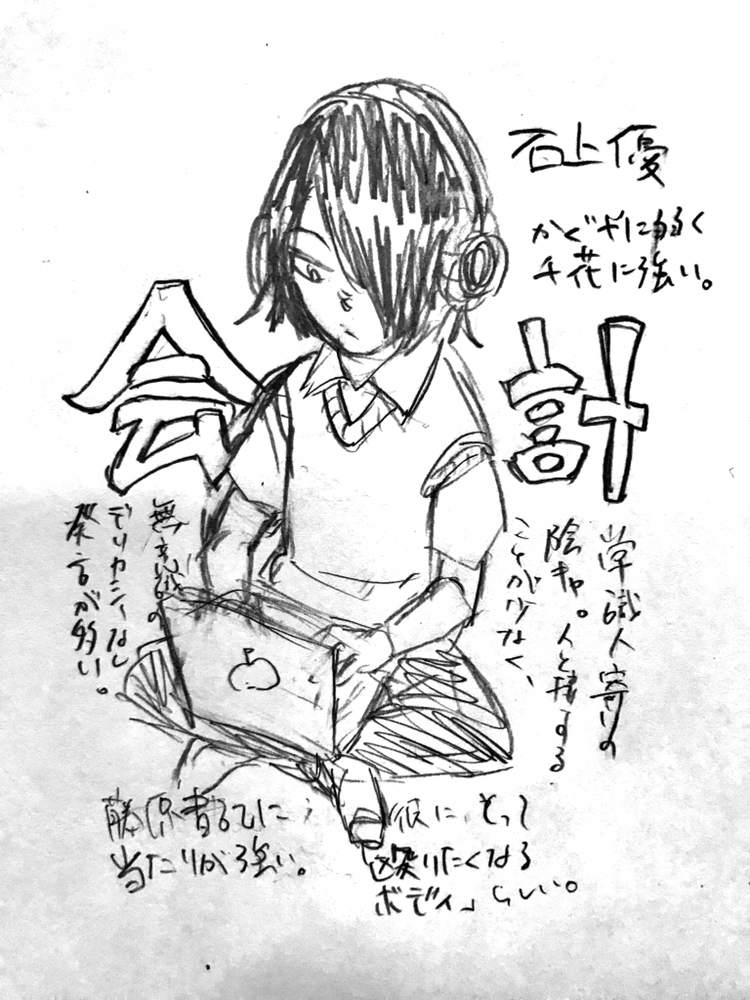 石上優
かぐやに弱く
千花に強い。
会計
常識人寄りの
陰キャ。人と接する
ことが少なく、
無意識の
デリカシィなし
発言が多い。
藤原書記に
当たりが強い。
彼にとって
「殴りたくなる
ボディ」らしい。